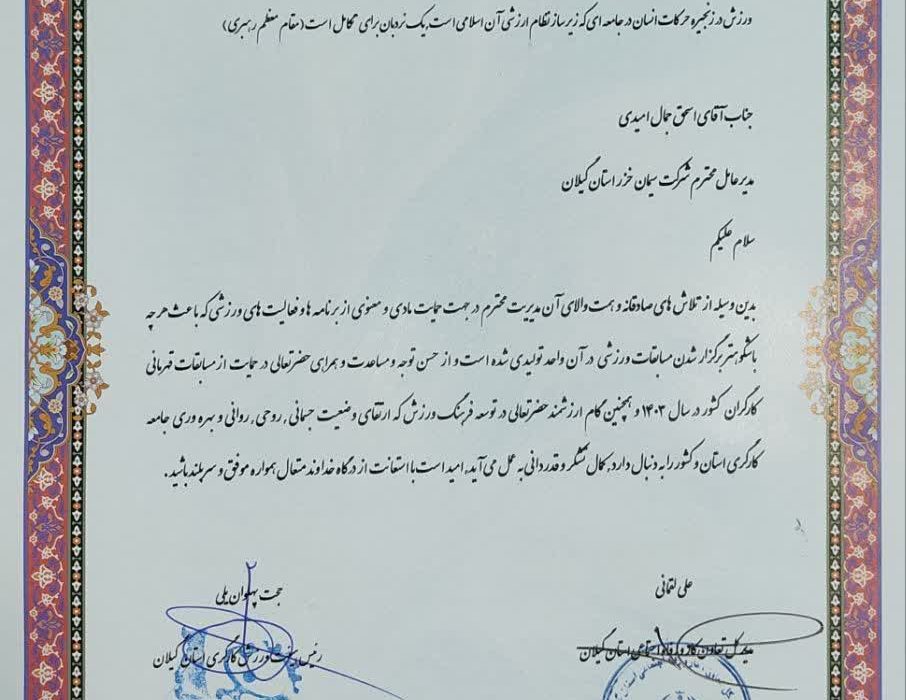 ورزش در زنجیره حرکات انسان در جامعه ای که زیرساز نظام ارزشی آن اسلامی است، یک نردبان برای تکامل است (مقام معظم رهبری)
جناب آقای اسحق جمال امیدی
مدیرعامل محترم شرکت سیمان خزر استان گیلان
سلام علیکم
بدین وسیله از تلاش های صادقانه و همت والای آن مدیریت محترم در جهت حمایت مادی و معنوی از برنامه ها و فعالیت های ورزشی که باعث هر چه
باشکوهتر برگزار شدن مسابقات ورزشی در آن واحد تولیدی شده است و از حسن توجه و مساعدت و همراهی حضرتعالی در حمایت از مسابقات قهرمانی
کارگران کشور در سال ۱۴۰۳ و همچنین گام ارزشمند حضرتعالی در توسعه فرهنگ ورزش که ارتقای وضعیت جسمانی، روحی، روانی و بهره وری جامعه
کارگری استان و کشور را به دنبال دارد، کمال تشکر و قدردانی به عمل می آید، امید است با استعانت از درگاه خداوند متعال همواره موفق و سربلند باشید.
علی لقمانی
مدیرکل تعاون کار و رفاه اجتماعی استان گیلان
حجت پهلوان یلی
رئیس هیئت ورزش کارگری استان گیلان